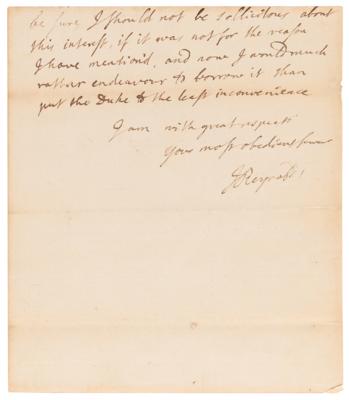 be sure I should not be sollicitous about
this interest, if it was not for the reason
I have mention'd, and now I am much
rather endeavour to borrow it than
put the Duke to the least inconvenience
I am with great respect
Your most obedient
JReynolds